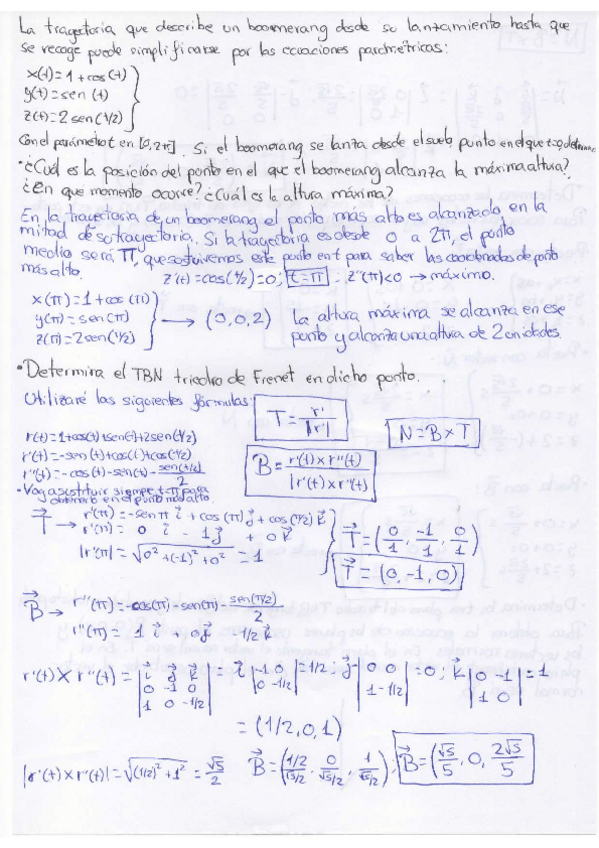 La trayectoria que describe un boomerang desde su lanzamiento hasta que
se recoge puede simplificarse por las ecuaciones paramétricas:
x(t)=1+cos(t)
y(t)=sen(t)
z(t)=2sen(t/2)
Con el parámetro t en [0,2π]. Si el boomerang se lanza desde el suelo, punto en el que t=0, determina:
• ¿Cuál es la posición del punto en el que el boomerang alcanza la máxima altura?
¿En qué momento ocurre? ¿Cuál es la altura máxima?
En la trayectoria de un boomerang el punto más alto es alcanzado en la
mitad de su trayectoria. Si la trayectoria es desde 0 a 2π, el punto
medio será π, que sustituiremos este punto en t para saber las coordenadas de punto
más alto.
z'(t)=cos(t/2)=0; t=π ; z''(π)<0 → máximo.
x(π)=1+cos(π)
y(π)=sen(π)
z(π)=2sen(π/2)
→ (0,0,2)
La altura máxima se alcanza en ese
punto y alcanza una altura de 2 unidades.
• Determina el TBN triedro de Frenet en dicho punto.
Utilizaré las siguientes fórmulas:
T = r'/|r'|
N=B×T
B = r'(t)×r''(t)/|r'(t)×r''(t)|
r(t)=1+cos(t)+sen(t)+2sen(t/2)
r'(t)=-sen(t)+cos(t)+cos(t/2)
r''(t)=-cos(t)-sen(t)-sen(t/2)/2
• Voy a sustituir siempre t=π para
obtenerlo en el punto más alto.
T → r'(π)=-sen π i + cos(π) j + cos(π/2) k
r'(π)= 0 i - 1 j + 0 k
|r'(π)|=√(0²+(-1)²+0²) = 1
T=(0/1, -1/1, 0/1)
T=(0,-1,0)
B → r''(π)=-cos(π)-sen(π)-sen(π/2)/2
r''(π)= 1 i + 0 j - 1/2 k
r'(t)×r''(t)= |i j k; 0 -1 0; 1 0 -1/2| = i |-1 0; 0 -1/2| = 1/2; j |0 0; 1 -1/2| = 0; k |0 -1; 1 0| = 1
= (1/2,0,1)
|r'(t)×r''(t)|=√((1/2)²+1²) = √5/2 B=(1/2/√5/2, 0/√5/2, 1/√5/2); B=(√5/5, 0, 2√5/5)